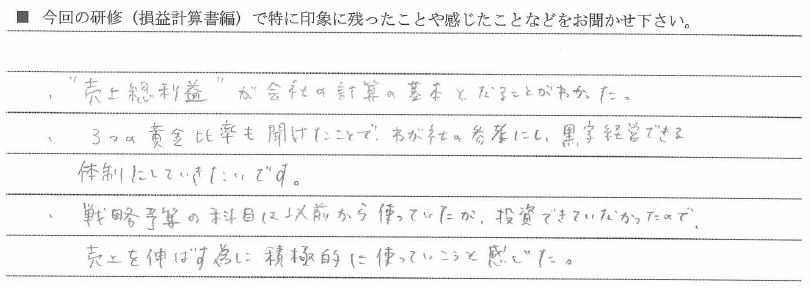 ■ 今回の研修（損益計算書編）で特に印象に残ったことや感じたことなどをお聞かせ下さい。
、"売上総利益"が会社の計算の基本となることがわかった。
、3つの黄金比率も聞けたことで、わが社の参考にし、黒字経営できる
体制にしていきたいです。
、戦略予算の科目は以前から使っていたが、投資できていなかったので、
売上を伸ばす為に積極的に使っていこうと感じた。